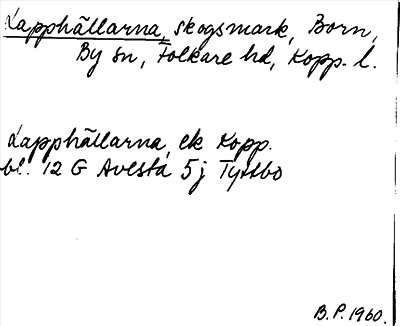 Lapphällarna, skogsmark, Born,
By sn, Folkare hd, Kopp. l.
Lapphällarna, ek Kopp.
bl. 12 G Avesta 5j Tyttbo
B.P. 1960.